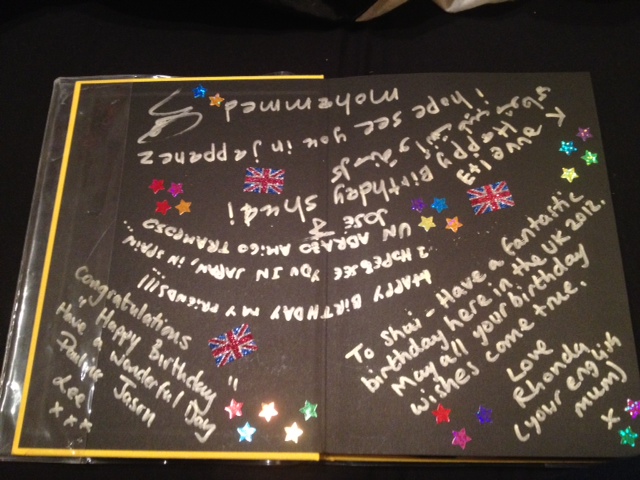 Mohammed
hope see you in jappenez
shuai
Happy
Birthday
Etienne
HAPPY BIRTHDAY MY FRIENDS!!!
I HOPE SEE YOU IN JAPAN, IN SPAIN...
UN ABRAZO AMIGO TRAMPOSO
JOSE
Congratulations
"Happy Birthday"
Have a wonderful Day
Pauline Jason
Lee
x x x
To Shui - Have a fantastic
birthday here in the UK 2012.
May all your birthday
wishes come true.
Love
Rhonda
(your english
mum)
x